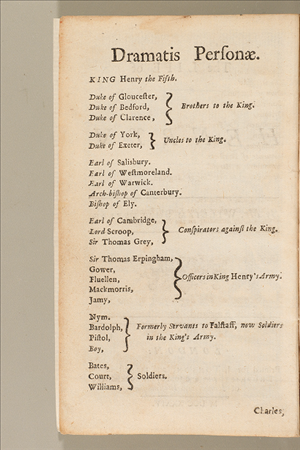 Dramatis Perſonæ.
KING Henry the Fifth.
Duke of Glouceſter,
Duke of Bedford,
Duke of Clarence,
Brothers to the King.
Duke of York,
Duke of Exeter,
Uncles to the King.
Earl of Salisbury.
Earl of Weſtmoreland.
Earl of Warwick.
Arch-biſhop of Canterbury.
Biſhop of Ely.
Earl of Cambridge,
Lord Scroop,
Sir Thomas Grey,
Conſpirators againſt the King.
Sir Thomas Erpingham,
Gower,
Fluellen,
Mackmorris,
Jamy,
Officers in King Henry's Army.
Nym.
Bardolph,
Piſtol,
Boy,
Formerly Servants to Falſtaff, now Soldiers
in the King's Army.
Bates,
Court,
Williams,
Soldiers.
Charles,